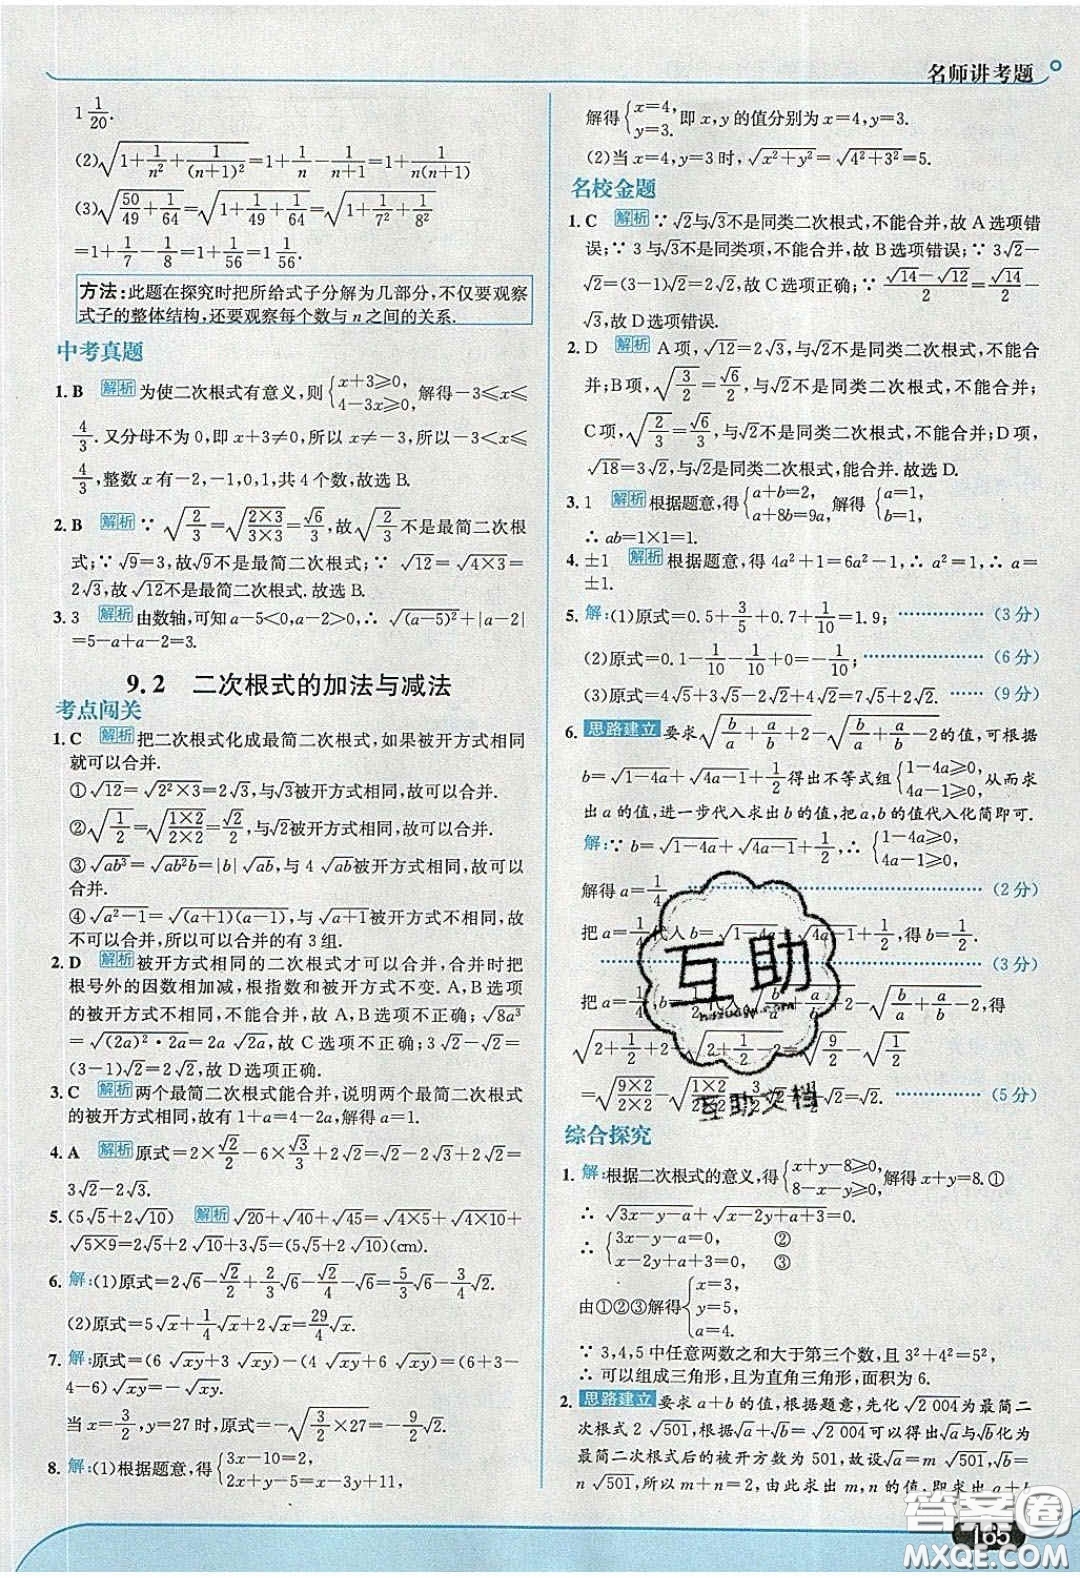 名师讲考题
1 1/20.
(2)√(1+1/n²+1/(n+1)²)=1+1/n-1/(n+1)=1+1/(n(n+1))
(3)√(50/49+1/64)=√(1+1/49+1/64)=√(1+1/7²+1/8²)
=1+1/7-1/8=1+1/56=1 1/56.
方法:此题在探究时把所给式子分解为几部分,不仅要观察
式子的整体结构,还要观察每个数与 n 之间的关系.
中考真题
1. B 解析 为使二次根式有意义,则{x+3≥0, 4-3x≥0, 解得-3≤x≤
4/3.又分母不为 0,即 x+3≠0,所以 x≠-3,所以-3<x≤
4/3,整数 x 有-2,-1,0,1,共 4 个数,故选 B.
2. B 解析 ∵ √(2/3)=√((2×3)/(3×3))=√6/3,故√(2/3)不是最简二次根
式;∵√9=3,故√9不是最简二次根式,∵ √12=√(4×3)=
2√3,故√12不是最简二次根式.故选 B.
3. 3 解析 由数轴,可知 a-5<0,a-2>0,∴ √((a-5)²)+|a-2|
=5-a+a-2=3.
9.2 二次根式的加法与减法
考点闯关
1. C 解析 把二次根式化成最简二次根式,如果被开方式相同
就可以合并.
①√12=√(2²×3)=2√3,与√3被开方式相同,故可以合并.
②√(1/2)=√((1×2)/(2×2))=√2/2,与√2被开方式相同,故可以合并.
③√(ab³)=√(ab²b)=|b|√(ab),与 4√(ab)被开方式相同,故可以
合并.
④√(a²-1)=√((a+1)(a-1)),与√(a+1)被开方式不相同,故
不可以合并,所以可以合并的有 3 组.
2. D 解析 被开方式相同的二次根式才可以合并,合并时把
根号外的因数相加减,根指数和被开方式不变. A,B 选项
的被开方式不相同,不能合并,故 A,B 选项不正确;√(8a³)
=√((2a)²·2a)=2a√(2a),故 C 选项不正确;3√2-√2=
(3-1)√2=2√2,故选 D.
3. C 解析 两个最简二次根式能合并,说明两个二次根式
的被开方式相同,故有 1+a=4-2a,解得 a=1.
4. A 解析 原式=2×√2/2-6×√3/3+2√2=√2-2√3+2√2=
3√2-2√3.
5. (5√5+2√10) 解析 √20+√40+√45=√(4×5)+√(4×10)+
√(5×9)=2√5+2√10+3√5=(5√5+2√10)(cm).
6. 解:(1)原式=2√6-√2/2+2/3√6-√2/4-√6=5/3√6-3/4√2.
(2)原式=5√x+1/4√x+2√x=29/4√x.
7. 解:原式=(6√(xy)+3√(xy))-(4√(xy)+6√(xy))=(6+3-
4-6)√(xy)=-√(xy).
当 x=3/2,y=27 时,原式=-√(3/2×27)=-9/2√2.
8. 解:(1)根据题意,得{3x-10=2, 2x+y-5=x-3y+11,
解得{x=4, y=3. 即 x,y 的值分别为 x=4,y=3.
(2)当 x=4,y=3 时,√(x²+y²)=√(4²+3²)=5.
名校金题
1. C 解析 ∵√2与√3不是同类二次根式,不能合并,故 A 选项错
误;∵ 3 与√3不是同类项,不能合并,故 B 选项错误;∵ 3√2-
√2=(3-1)√2=2√2,故 C 选项正确;∵ (√14-√12)/2=√14/2-
√3,故 D 选项错误.
2. D 解析 A 项,√12=2√3,与√2不是同类二次根式,不能合
并;B 项,√(3/2)=√6/2,与√2不是同类二次根式,不能合并;
C 项,√(2/3)=√6/3,与√2不是同类二次根式,不能合并;D 项,
√18=3√2,与√2是同类二次根式,能合并.故选 D.
3. 1 解析 根据题意,得{a+b=2, a+8b=9a, 解得{a=1, b=1,
∴ ab=1×1=1.
4. ±1 解析 根据题意,得 4a²+1=6a²-1,∴ a²=1,∴ a=
±1.
5. 解:(1)原式=0.5+3/5+0.7+1/10=1.9; (3 分)
(2)原式=0.1-1/10-1/10=-1/10; (6 分)
(3)原式=4√5+3√5-2√2+4√2=7√5+2√2. (9 分)
6. 思路建立 要求√(b/a+a/b+2)-√(b/a+a/b-2)的值,可根据
b=√(1-4a)+√(4a-1)+1/2得出不等式组{1-4a≥0, 4a-1≥0, 从而求
出 a 的值,进一步代入求出 b 的值,把 a,b 的值代入化简即可.
解:∵ b=√(1-4a)+√(4a-1)+1/2,∴ {1-4a≥0, 4a-1≥0,
解得 a=1/4, (2 分)
把 a=1/4代入 b=√(1-4a)+√(4a-1)+1/2,得 b=1/2.
(3 分)
把 a=1/4,b=1/2代入√(b/a+a/b+2)-√(b/a+a/b-2),得
√(2+1/2+2)-√(2+1/2-2)=√(9/2)-√(1/2)
=√((9×2)/(2×2))-√((1×2)/(2×2))=3/2√2-√2/2=√2. (5 分)
综合探究
1. 解:根据二次根式的意义,得{x+y-8≥0, 8-x-y≥0, 解得 x+y=8.①
∴ √(3x-y-a)+√(x-2y+a+3)=0.
∴ {3x-y-a=0, ②
x-2y+a+3=0, ③
由①②③解得{x=3, y=5, a=4.
∵ 3,4,5 中任意两数之和大于第三个数,且 3²+4²=5²
∴ 可以组成三角形,且为直角三角形,面积为 6.
2. 思路建立 要求 a+b 的值,根据题意,先化√2 004为最简二
次根式 2√501,根据√a+√b=√2 004可以得出√a与√b化为
最简二次根式后的被开方数为 501,故设√a=m√501,√b=
n√501,所以 m+n=2,由此求出 m,n 的值,即可求出 a+b
165
互助
互助文档
答案圈
MXQE.COM